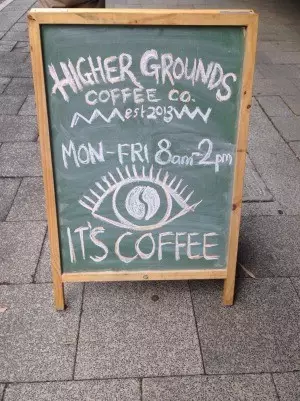 HIGHER GROUNDS
COFFEE CO.
est 2013
MON-FRI 8am-2pm
IT'S COFFEE